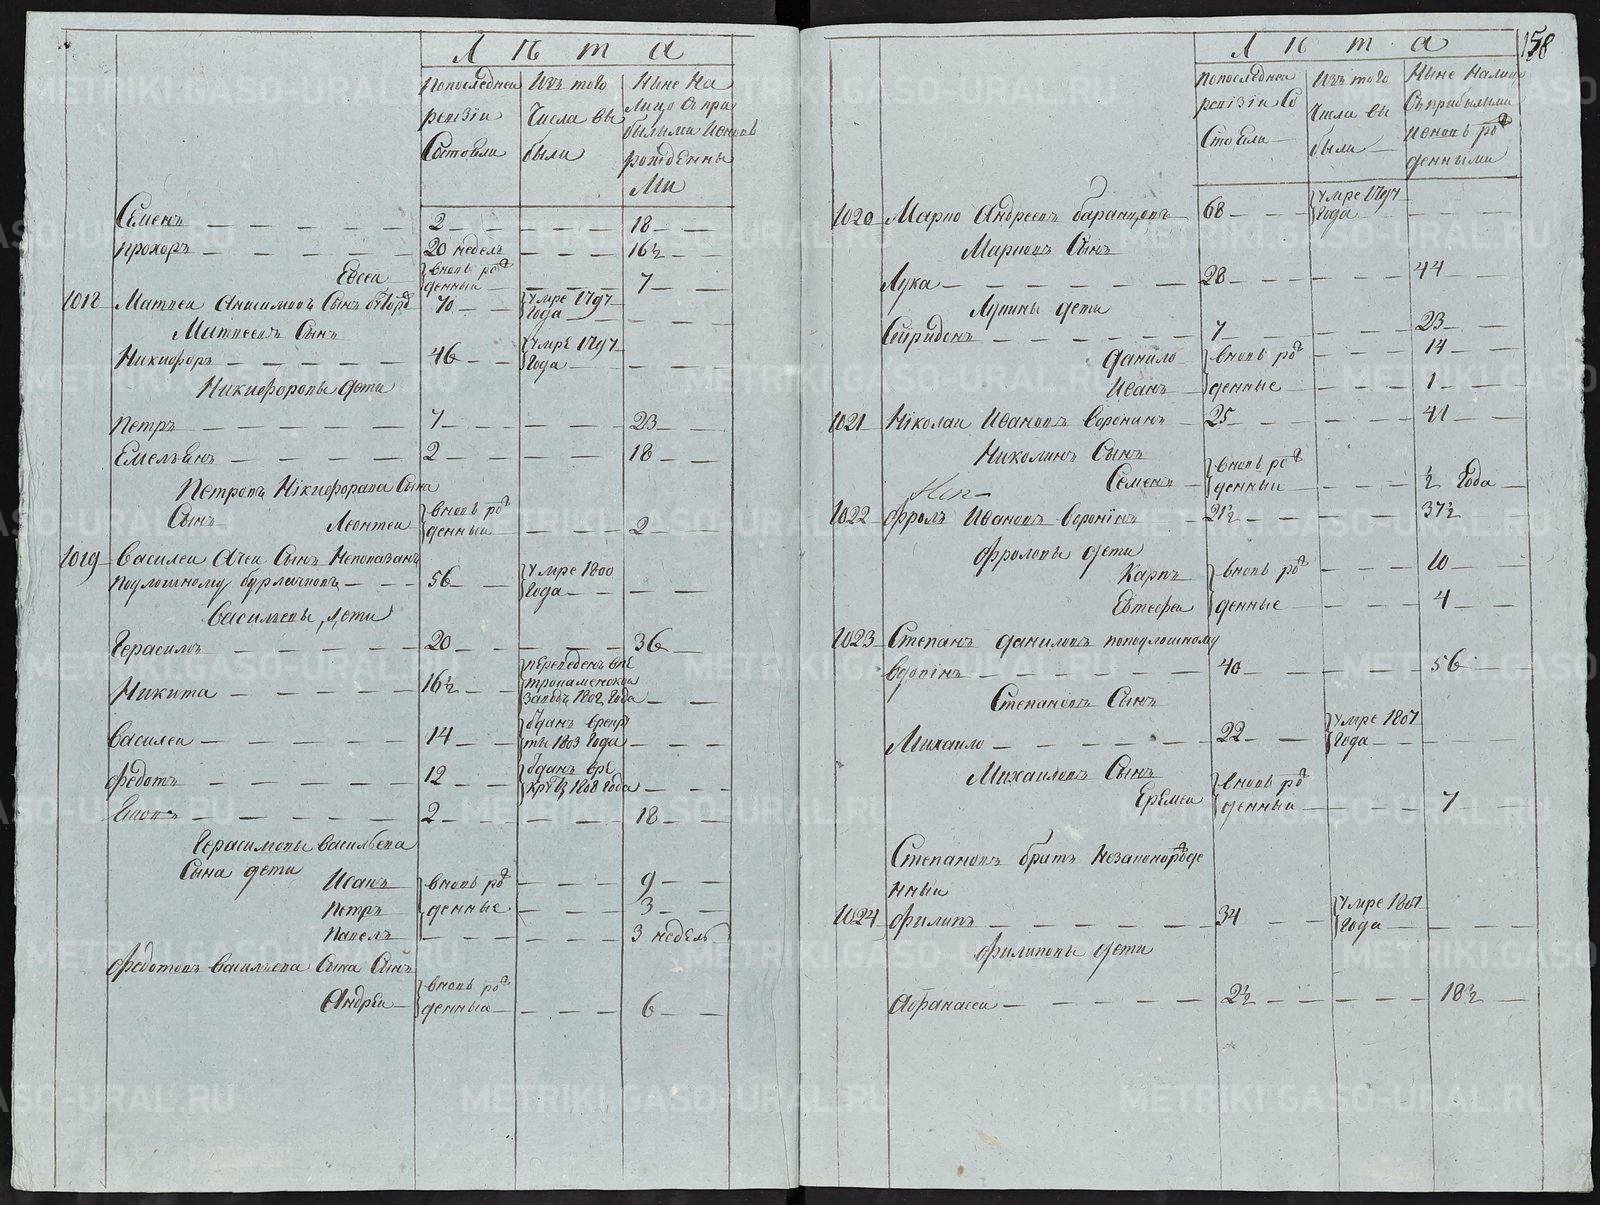 Лѣта
Попоследнеи ревизiи Состояли
Изъ того Числа вы были
Ныне На Лицо Съ при былыми Ивновь рожденны Ми
Семенъ — 2 — 18
Прохоръ — 20 недель — 16½
Евсеи вновь рож денныи — 7
1018 Матвеи Анисимовъ Сынъ 70 умре 1797 Года
Матвеевъ Сынъ
Никифоръ — 46 умре 1797 Года
Никифоровы дети
Петръ — 7 — 23
Емельянъ — 2 — 18
Петровъ Нiкифорова Сына
Сынъ Леонтеи вновь рож денныи — 2
1019 Василеи Сынъ Непоказанъ
Подушному бурлачковъ — 56 умре 1800 Года
Васильевы дети
Герасимъ — 20 — 36
Никита — 16½ переведенъ в 1802 Года
Василеи — 14 Отданъ врекру ты 1803 Года
Федотъ — 12 Отданъ вре круты 1808 Года
2 — 18
Герасимовы Васильева
Сына дети Иванъ вновь рож — 9
Петръ денные — 3
Павелъ — 3 недель
Федотовъ Васильева Сына Сынъ
Андреи вновь рож денныи — 6
158
Лѣта
Попоследнеи ревизiи Со Стояли
Изъ того Числа вы были
Ныне Налицо Съприбылыми ивновь рож денными
1020 Марко Андреевъ баранцовъ 68 умре 1797 Года
Марковъ Сынъ
Лука — 28 — 44
Лукины дети
Спиридонъ — 7 — 23
Данило вновь рож — 14
Иванъ денные — 1
1021 Нiколаи Ивановъ Воронинъ 25 — 41
Николинъ Сынъ
Семенъ вновь рож денныи — ½ Года
1022 Фролъ Ивановъ Воронiнъ 21½ — 37½
Фроловы дети
Карпъ вновь рож — 10
Евтефеи денные — 4
1023 Степанъ Даниловъ поподушному
Вдовiнъ — 40 — 56
Степановъ Сынъ
Михаило — 22 умре 1807 Года
Михаиловъ Сынъ
Еремеи вновь рож денныи — 7
Степановъ братъ Незаконорожде
нныи
1024 Филипъ — 34 умре 1801 Года
Филиповы дети
Афанасеи — 2½ — 18½